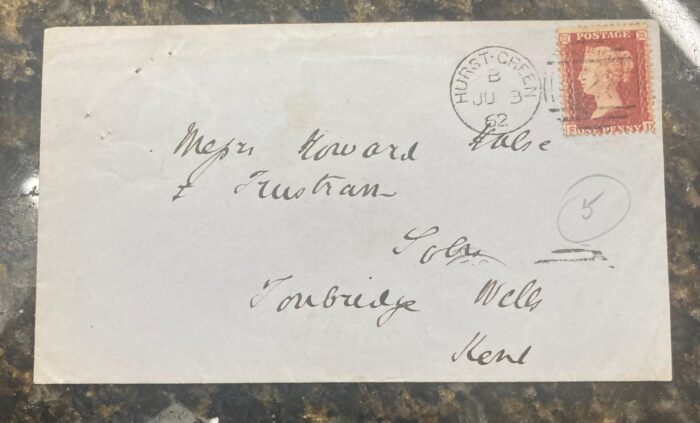 HURST-GREEN
B
JU 3
62
POSTAGE
ONE PENNY
Messrs Howard Halse
& Trustram
Solrs
Tonbridge Wells
Kent
5